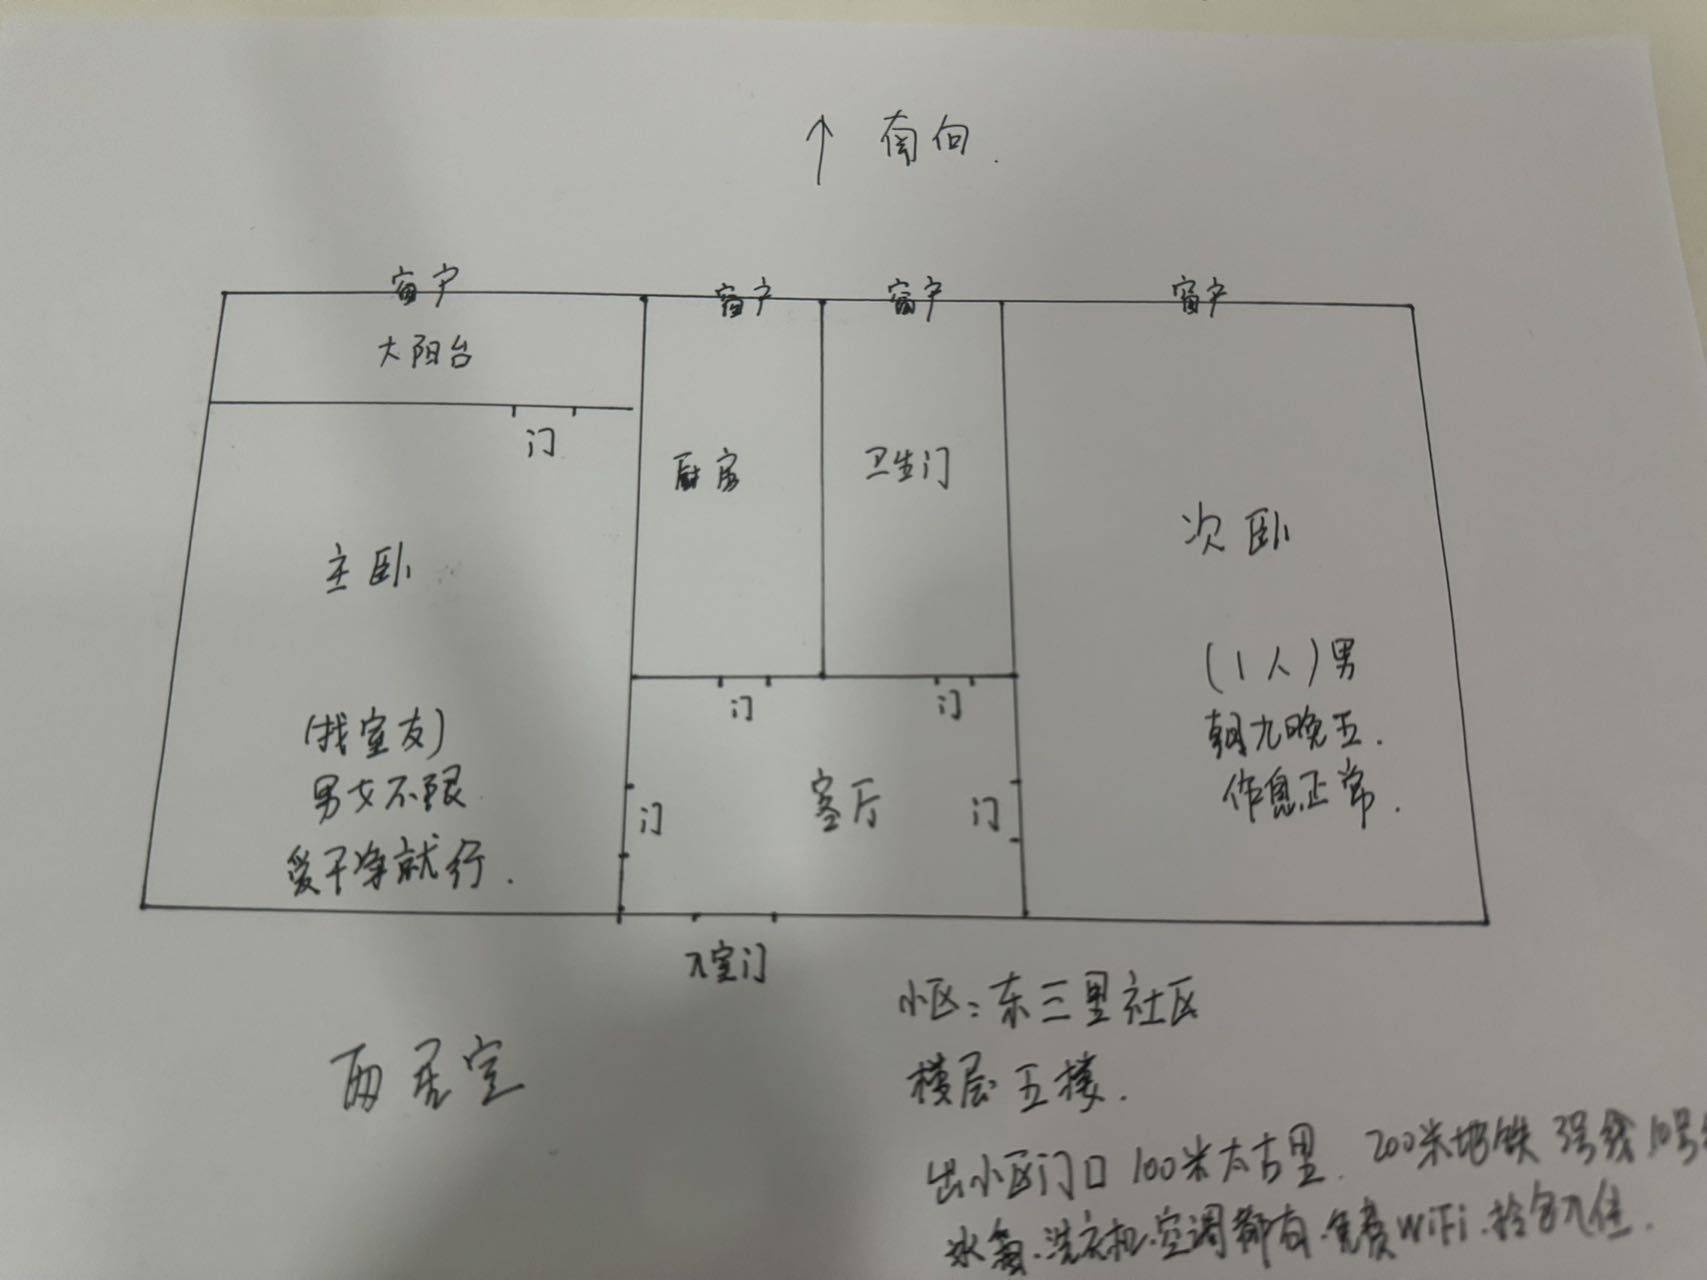 ↑ 南向.
窗户 窗户 窗户 窗户
大阳台
门
厨房 卫生门
主卧 次卧
(1人)男
朝九晚五.
作息正常.
(找室友)
男女不限
爱干净就行.
门 门
门 客厅 门
入室门
两居室
小区:东三里社区
楼层:五楼.
出小区门口100米太古里. 200米地铁 3号线10号
冰箱.洗衣机.空调都有.免费WiFi.拎包入住.